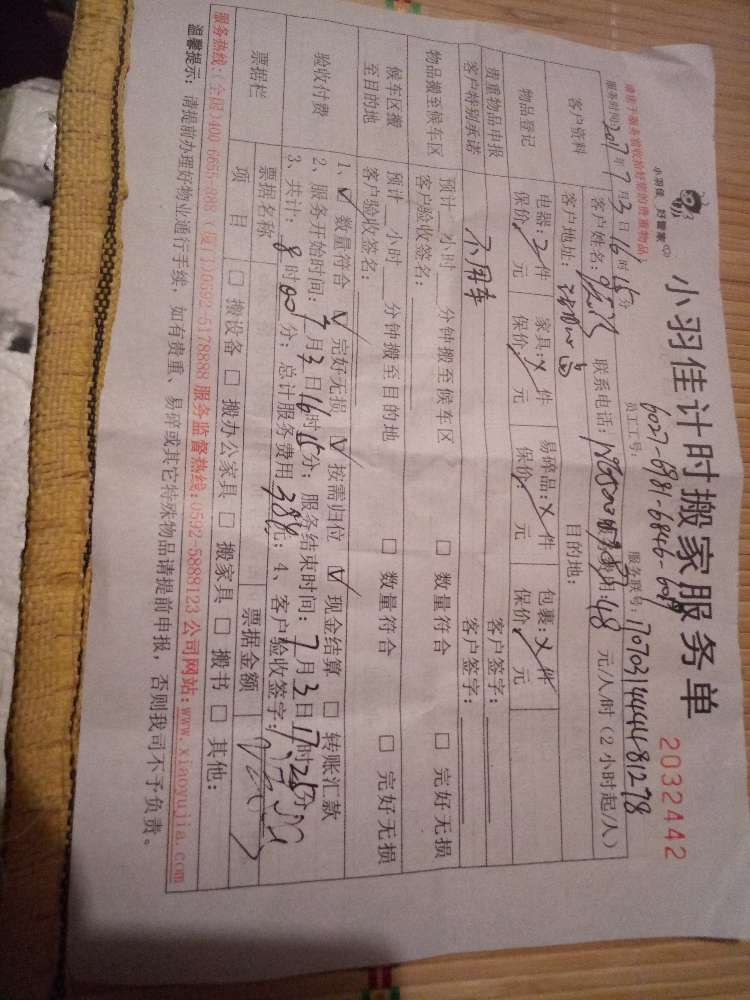 小羽佳 好管家
小羽佳计时搬家服务单
2032442
请您于服务前收拾好您的贵重物品;
员工工号: 6027-6981-6846-
服务联号:
服务时间: 2017年7月3日16时15分
客户资料
客户姓名: 联系电话: 48 元/人/时(2小时起/人)
客户地址: 目的地:
物品登记
电器:2件 家具:X件 易碎品:X件 包裹:X件
保价 元 保价 元 保价 元 保价 元
贵重物品申报 客户签字:
客户特别承诺 不用车 客户签字:
物品搬至候车区
预计 小时 分钟搬至候车区 □ 数量符合 □ 完好无损
客户验收签名:
候车区搬至目的地
预计 小时 分钟搬至目的地 □ 数量符合 □ 完好无损
客户验收签名:
验收付费
1、☑ 数量符合 ☑ 完好无损 ☑ 按需归位 ☑ 现金结算 □ 转账汇款
2、服务开始时间:7月3日16时15分;服务结束时间:7月3日17时25分
3、共计:8时00分;总计服务费用 384元;4、客户验收签字:
票据栏
票据名称 票据金额
项 目 □ 搬设备 □ 搬办公家具 □ 搬家具 □ 搬书 □ 其他:
服务热线:(全国)400-6655-888 (厦门)0592-5178888 服务监督热线:0592-5888123 公司网站:www.xiaoyujia.com
温馨提示: 请提前办理好物业通行手续, 如有贵重、易碎或其它特殊物品请提前申报, 否则我司不予负责。